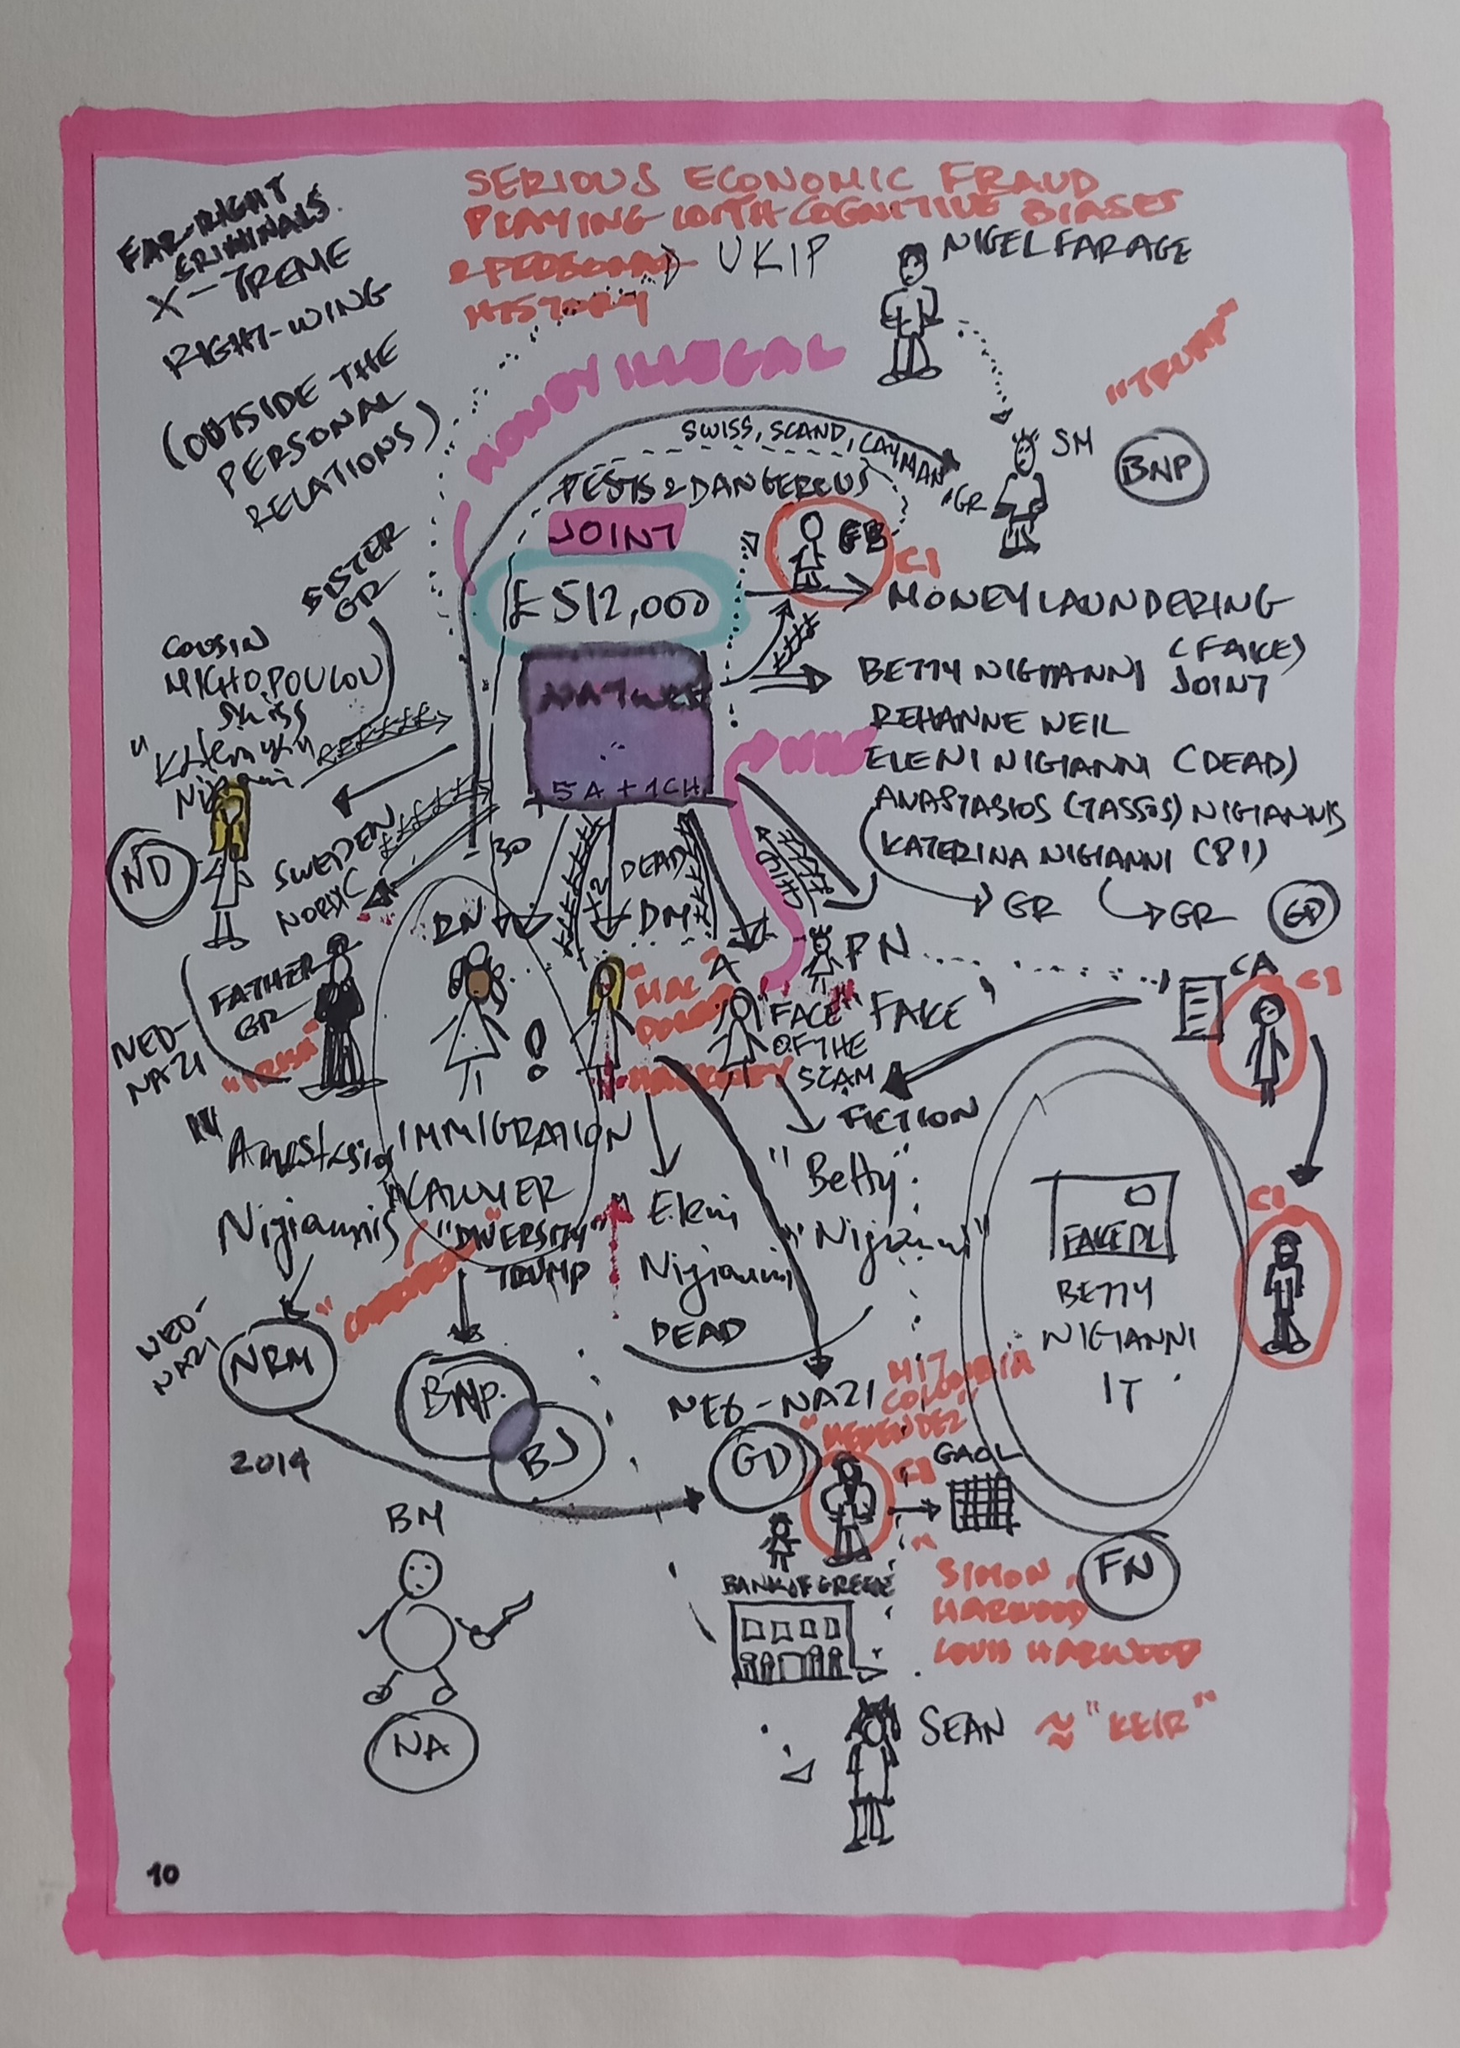 FAR-RIGHT
CRIMINALS.
X-TREME
RIGHT-WING
(OUTSIDE THE
PERSONAL
RELATIONS)
SERIOUS ECONOMIC FRAUD
PLAYING WITH COGNITIVE BIASES
HISTORY
UKIP
NIGEL FARAGE
"TRUMP"
MONEY ILLEGAL
SWISS, SCAND, CAYMAN, GR
SM
BNP
PESTS & DANGEROUS
JOINT
£512,000
C1
MONEY LAUNDERING
SISTER
GR
COUSIN
MICHOPOULOU
SWISS
BETTY NIGIANNI (FAKE)
JOINT
REHANNE NEIL
ELENI NIGIANNI (DEAD)
ANASTASIOS (TASSOS) NIGIANNIS
KATERINA NIGIANNI (81)
GR
GR
GD
5A + 1CH
ND
SWEDEN
NORDIC
30
DEAD
DM
PN
CA
C1
FATHER
GR
NEO-
NAZI
A
"FACE"
OF THE
SCAM
FAKE
FICTION
IMMIGRATION
LAWYER
"DIVERSITY"
TRUMP
Anastasios
Nigiannis
Eleni
Nigianni
DEAD
"Betty"
"Nigianni"
FAKE DL
BETTY
NIGIANNI
IT
C1
NEO-
NAZI
NRM
BNP.
BJ
2014
NEO-NAZI
GD
COLOMBIA
C1
GAOL
BANK OF GREECE
FN
SIMON
HARWOOD
LOUIS HARWOOD
BM
NA
SEAN ≈ "KEIR"
10